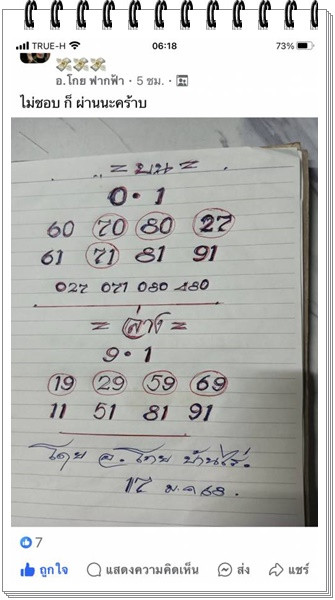 TRUE-H 06:18 73%
อ.โกย ฟากฟ้า · 5 ชม. ·
ไม่ชอบ ก็ ผ่านนะคร้าบ
= บน =
0 · 1
60 70 80 27
61 71 81 91
027 071 080 480
= ล่าง =
9 · 1
19 29 59 69
11 51 81 91
โดย อ. โกย บ้านไร่.
17 ม.ค 68.
7
ถูกใจ แสดงความคิดเห็น ส่ง แชร์